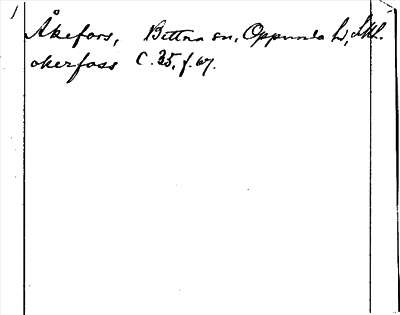 Åkefors, Bettna sn, Oppunda hd, Söd.
okerfoss C. 35, f. 67.